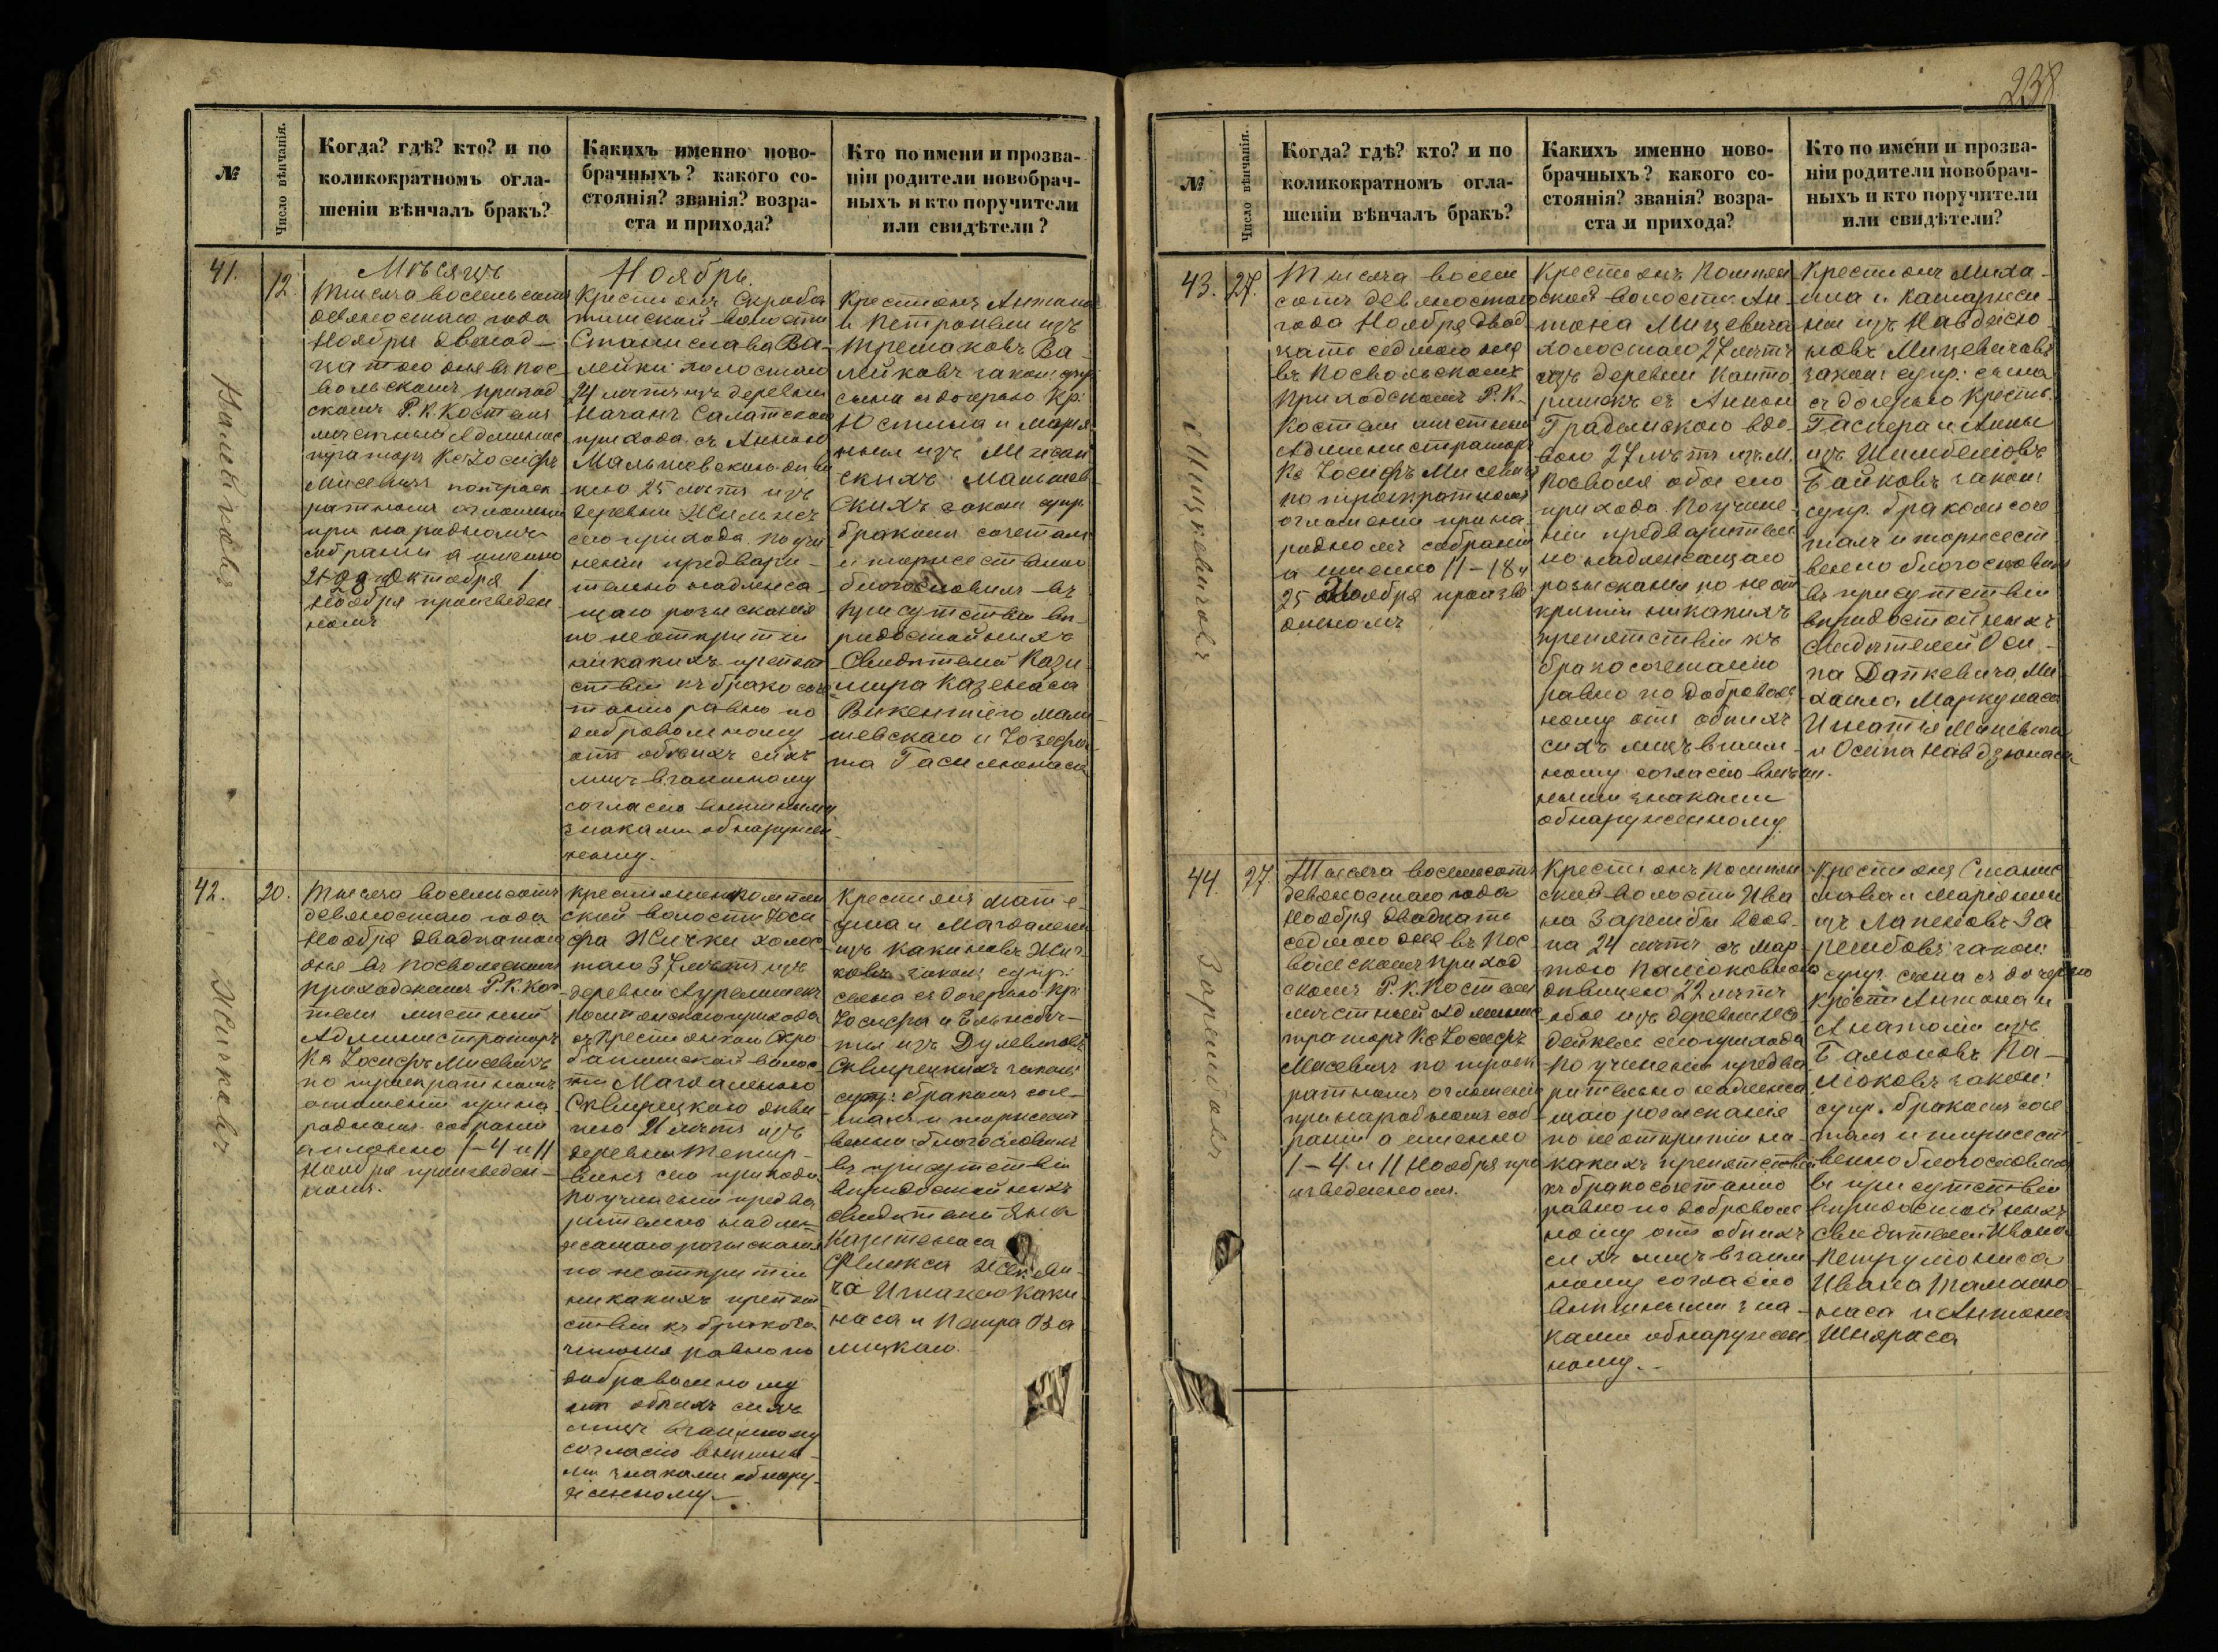 238
№
Число вѣнчанія.
Когда? гдѣ? кто? и по
коликократномъ огла-
шеніи вѣнчалъ бракъ?
Какихъ именно ново-
брачныхъ? какого со-
стоянія? званія? возра-
ста и прихода?
Кто по имени и прозва-
ніи родители новобрач-
ныхъ и кто поручители
или свидѣтели?
41.
12.
Мѣсяцъ
Тысяча восемьсотъ
девяностаго года
Ноября двенад-
цатого дня въ Пос-
вольскомъ приход
скомъ Р. К. Костелѣ
мѣстный Админис
траторъ Кс Іосифъ
Мисевичъ по троек
ратномъ оглашеніи
при народномъ
собраніи а именно
21 28 Октября 1
Ноября произведен
номъ
Ноябрь.
Крестьянъ Скроб
тишской волости
Станислава Ва-
лейки холостаго
24 лѣтъ изъ деревни
Салатскаго
прихода съ Анною
Малышевскою дѣви
цею 25 лѣтъ изъ
деревни
сего прихода по учи
неніи предвари-
тельно надлежа-
щаго розысканія
по неоткрытіи
никакихъ препят
ствій къ бракосоче
танію равно по
добровольному
отъ обѣихъ сихъ
лицъ взаимному
согласію внѣшними
знаками обнаружен
ному.
Крестьянъ Антона
и Петронели изъ
Тремаковъ Ва-
лейковъ закон: супр
сына съ дочерью Кр:
Юстина и Марья
нны изъ
скихъ Малышев
скихъ закон супр
бракомъ сочеталъ
и торжественно
благословилъ въ
присутствіи вѣ-
ридостойныхъ
Свидѣтелей Кази
мира Казенаса
Викентіего Малы
шевскаго и Іозефа
та Гасюнаса
Валейковъ
42.
20.
Тысяча восемьсотъ
девяностаго года
Ноября двадцатаго
дня въ Посвольскомъ
приходскомъ Р. К. Кос
телѣ мѣстный
Администраторъ
Кс Іосифъ Мисевичъ
по троекратномъ
оглашеніи при на
родномъ собраніи
а именно 1-4 и 11
Ноября произведен-
номъ.
Крестьянъ Помпян
ской волости Іоси
фа Жички холос
таго 37 лѣтъ изъ
деревни
Помпянскаго прихода
съ Крестьянкою Скро
батишской волос
ти Магдаленою
Сквирецкою дѣви
цею 21 лѣтъ изъ
деревни
сего прихода
по учиненіи предва
рительно надле-
жащаго розысканія
по неоткрытіи
никакихъ препят
ствій къ бракосо
четанія равно по
добровольному
отъ обѣихъ сихъ
лицъ взаимному
согласію внѣшны-
ми знаками обнару-
женному.
Крестьянъ Мате-
уша и Магдалены
изъ Какиновъ Жич
ковъ закон: супр:
сына съ дочерью Кр:
Іосифа и Ельжбе-
ты изъ Дулевичовъ
Сквирецкихъ закон:
супр: бракомъ соче-
талъ и торжест
венно благословилъ
въ присутствіи
вѣридостойныхъ
свидѣтелей Яна
Феликса
Игнацего Каки
наса и Петра
Жичковъ
№
Число вѣнчанія.
Когда? гдѣ? кто? и по
коликократномъ огла-
шеніи вѣнчалъ бракъ?
Какихъ именно ново-
брачныхъ? какого со-
стоянія? званія? возра-
ста и прихода?
Кто по имени и прозва-
ніи родители новобрач-
ныхъ и кто поручители
или свидѣтели?
43.
27.
Тысяча восем
сотъ девяностаго
года Ноября двад
цать седмого дня
въ Посвольскомъ
приходскомъ Р. К.
Костелѣ мѣстный
Администраторъ
Кс Іосифъ Мисевичъ
по троекратномъ
оглашеніи при на-
родномъ собраніи
а именно 11-18 и
25 Ноября произве
деномъ
Крестьянъ Помпян
ской волости Ан-
тона Мицевича
холостаго 27 лѣтъ
изъ деревни
съ Анною
вдо-
вою 27 лѣтъ изъ М.
Посволя обое сего
прихода По учине-
ніи предваритель
но надлежащаго
розысканія по неот
крытіи никакихъ
препятствій къ
бракосочетанію
равно по доброволь
ному отъ обѣихъ
сихъ лицъ взаим-
ному согласію внѣш
ными знаками
обнаруженному
Крестьянъ Миха-
ила и Катаржи-
ны изъ Навдзю
новъ Мицевичовъ
закон: супр: сына
съ дочерью Крестьн.
Гаспера и Анны
изъ
закон:
супр. бракомъ соче
талъ и торжест
венно благословилъ
въ присутствіи
вѣридостойныхъ
свидѣтелей Оси-
па Даткевича, Ми
хаила Маркунаса
Игнатія Мицевича
и Осипа Навдзюнаса
Мицкевичовъ
44.
27.
Тысяча восемьсотъ
девяностаго года
Ноября двадцать
седмого дня въ Пос
вольскомъ приход
скомъ Р. К. Костелѣ
мѣстный Админис
траторъ Кс Іосифъ
Мисевичъ по троек
ратномъ оглашеніи
при народномъ соб
раніи а именно
1-4 и 11 Ноября про
изведенномъ.
Крестьянъ Помпян
ской волости Ива
на Зарембы вдов-
ца 24 лѣтъ съ Мар
тою Палюковною
дѣвицею 22 лѣтъ
обое изъ деревни
сего прихода
По учиненіи предва
рительно надлежа
щаго розысканія
по неоткрытіи ни-
какихъ препятствій
къ бракосочетанію
равно по доброволь
ному отъ обѣихъ
сихъ лицъ взаим
ному согласію
внѣшними зна-
ками обнаружен
ному.
Крестьянъ Станис
лава и Маріянны
изъ Лапеновъ За
рембовъ закон:
супр. сына съ дочерью
Крест: Антона и
Анатоліи изъ
Па-
люковъ закон:
супр. бракомъ соче
талъ и торжест
венно благословилъ
въ присутствіи
вѣридостойныхъ
Свидѣтелей Ивана
Петрулюниса
Ивана Тамашю
наса и Антона
Шняраса
Зарембовъ